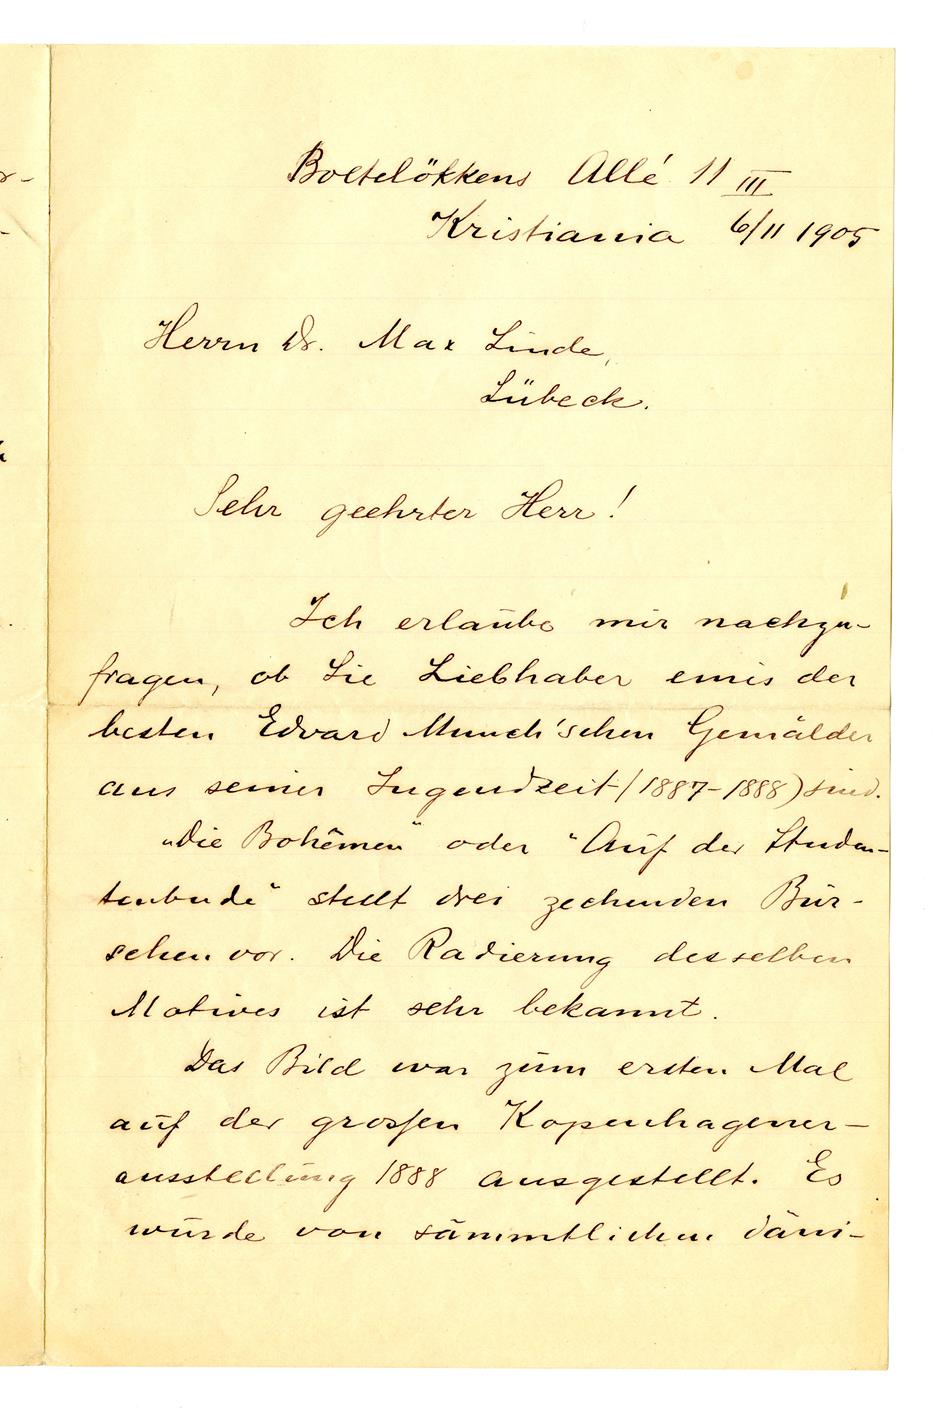 Boltelökkens Allé 11 III
Kristiania 6/11 1905
Herrn Dr. Max Linde,
Lübeck.
Sehr geehrter Herr!
Ich erlaube mir nachzu-
fragen, ob Sie Liebhaber eines der
besten Edvard Munch'schen Gemälder
aus seiner Jugendzeit (1887-1888) sind.
"Die Bohêmen" oder "Auf der Studen-
tenbude" stellt drei zechenden Bur-
schen vor. Die Radierung desselben
Motives ist sehr bekannt.
Das Bild war zum ersten Mal
auf der grossen Kopenhagener-
ausstellung 1888 ausgestellt. Es
wurde von sämmtlichen däni-